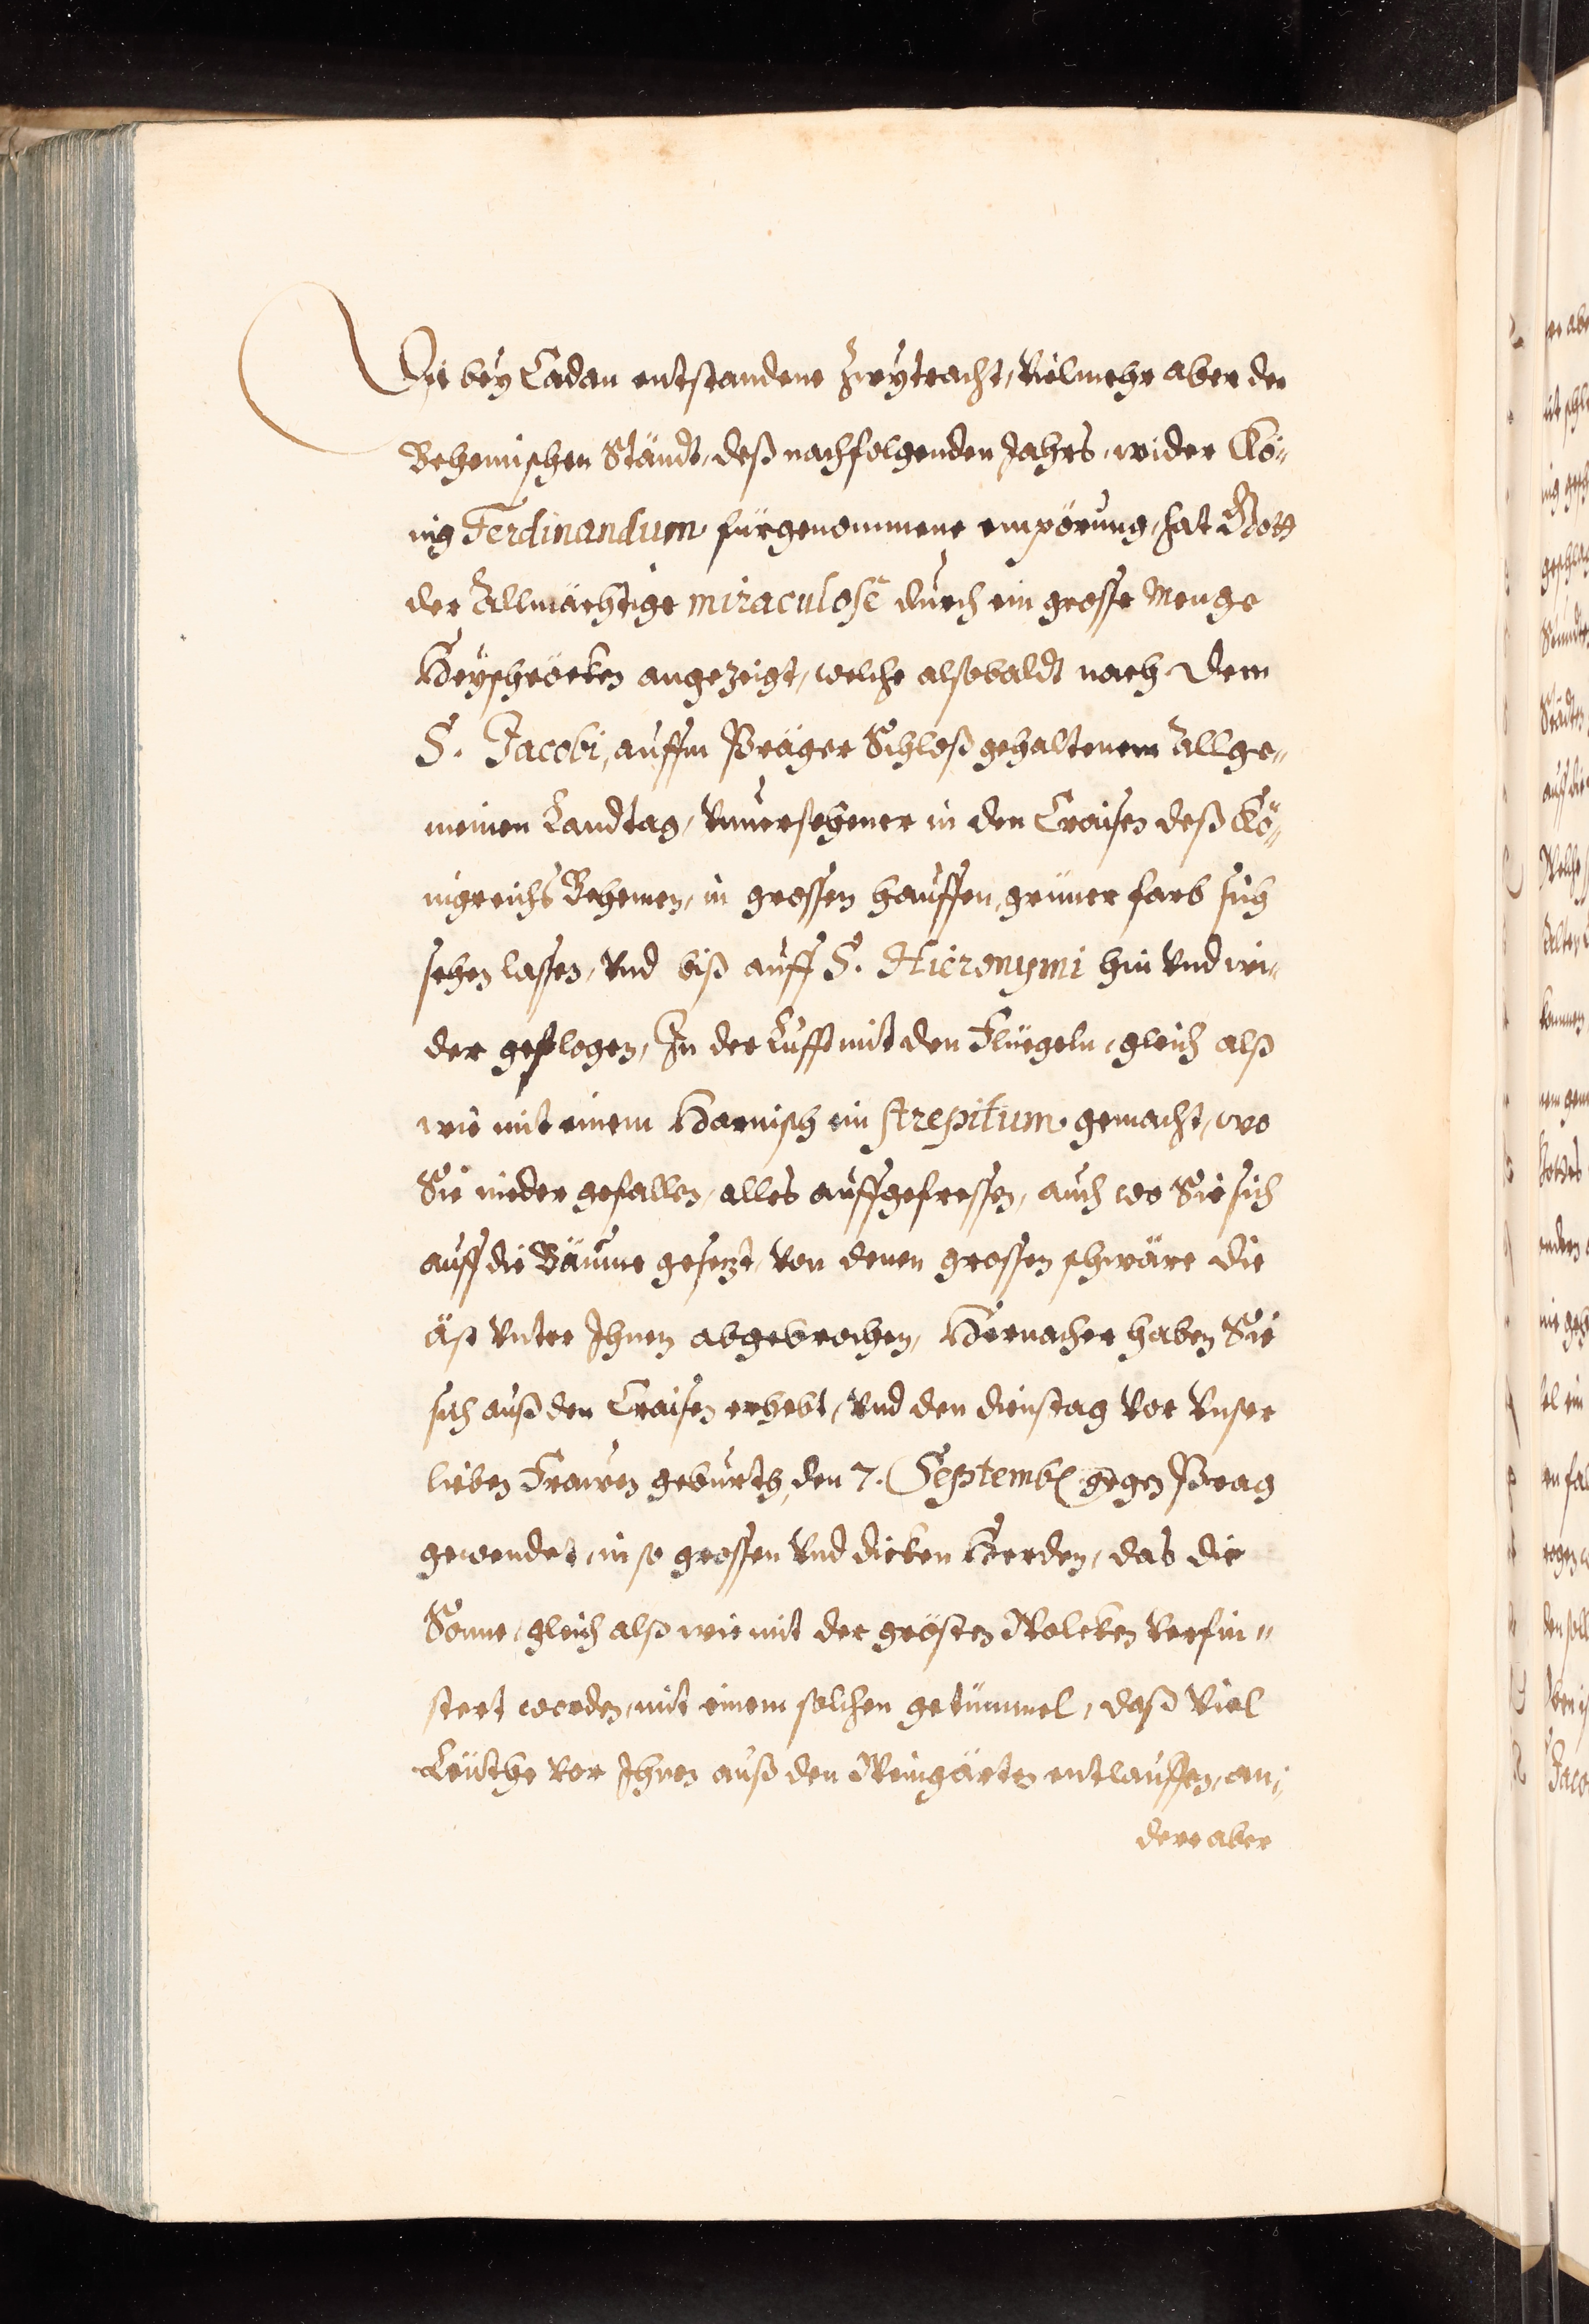 Die bey Cadan entstandene Zwytracht, Vielmehr aber der
Behemischen Ständt, deß nachfolgenden Jahrs, wider Kö-
nig Ferdinandum fürgenommene empörung, hat Gott
der Allmächtige miraculosè durch ein grosse Menge
Heyschröcken angezeigt, welche alßobaldt nach dem
S. Jacobi, auffm Präger Schloß gehaltenem Allge-
meinen Landtag, Vnuersehener in den Craisen deß Kö-
nigreichs Behemen, in grossen hauffen, grüner farb sich
sehen lassen, Vnd biß auff S. Hieronymi hin Vnd wi-
der geflogen, In der Lufft mit den Flüegeln, gleich alß
wie mit einem Harnisch ein strepitum gemacht, wo
Sie nider gefallen, alles auffgefressen, auch wo Sie sich
auff die Bäume gesetzt, Von denen grossen schwäre die
äst Vnter Ihnen abgebrochen, Hernacher haben Sie
sich auß den Craisen erhebt, Vnd den dienstag Vor Vnser
lieben Frawen geburth, den 7. Septemb. gegen Prag
gewendet, in so grossen Vnd dicken Heerden, das die
Sonne, gleich alß wie mit der grösten Wolcken Verfin-
stert worden, mit einem solchen getümmel, daß Viel
Leüthe Vor Ihnen auß den Weingärten entlauffen, an-
dere aber